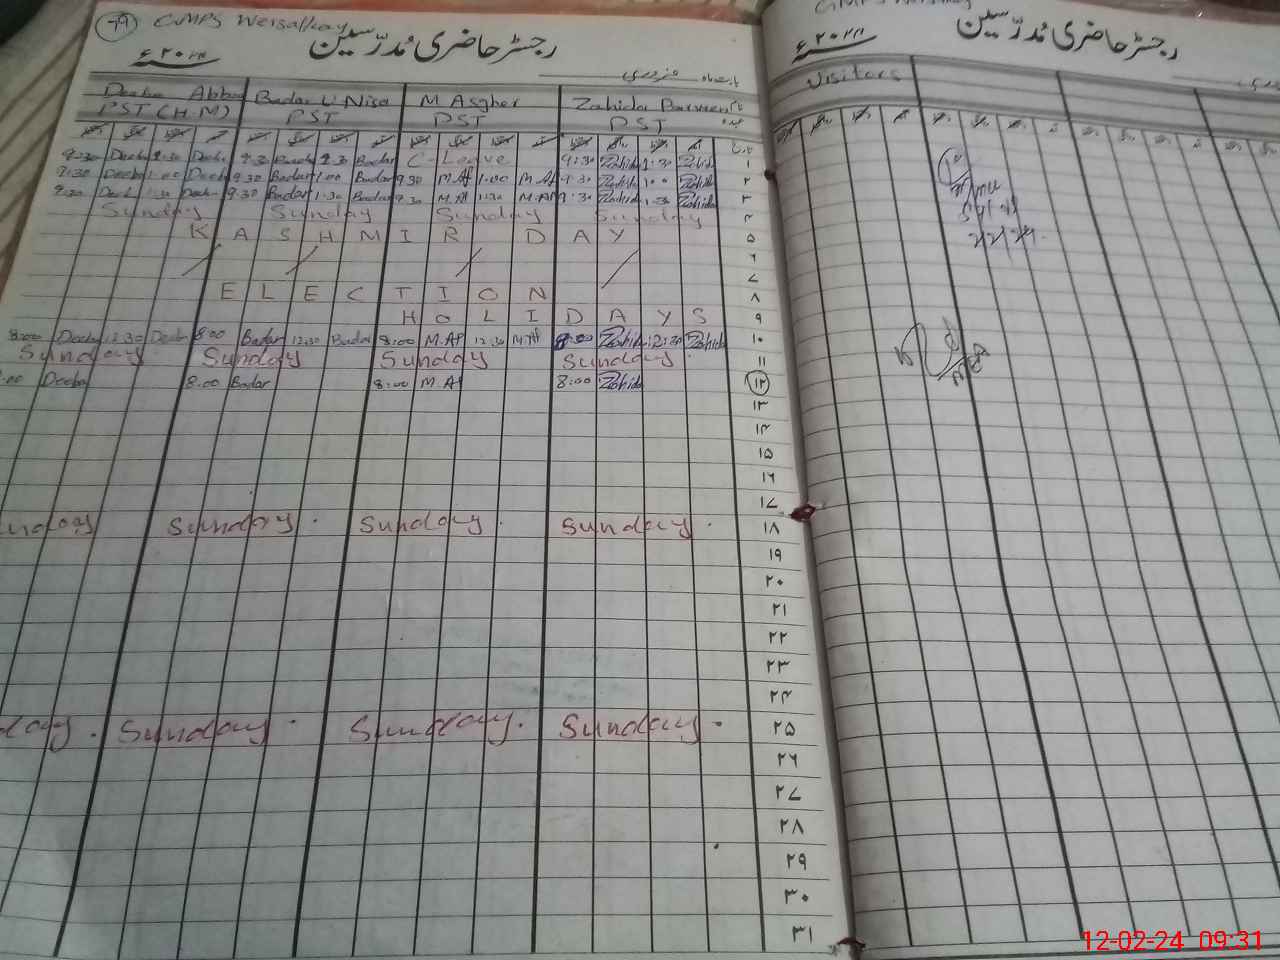 79 GMPS Weisalkay
رجسٹر حاضری مُدرّسین
۲۰۲۴ء
بابت ماہ فروری
Deeba Abba Badar U Nisa M Asgher Zahida Parveen نام
PST (H.M) PST PST PST عہدہ
تاریخ
9:30 Deeba 1:30 Deeba 9:30 Badar 1:30 Badar C-Leave 9:30 Zahida 1:30 Zahida ۱
9:30 Deeba 1:00 Deeba 9:30 Badar 1:00 Badar 9:30 M.Af 1:00 M.Af 9:30 Zahida 1:00 Zahida ۲
9:30 Deeba 1:30 Deeba 9:30 Badar 1:30 Badar 9:30 M.Af 1:30 M.Af 9:30 Zahida 1:30 Zahida ۳
Sunday Sunday Sunday Sunday ۴
KASHMIR DAY ۵
۶
۷
ELECTION ۸
HOLIDAYS ۹
8:00 Deeba 12:30 Deeba 8:00 Badar 12:30 Badar 8:00 M.Af 12:30 M.Af 8:00 Zahida 12:30 Zahida ۱۰
Sunday Sunday Sunday Sunday ۱۱
:00 Deeba 8:00 Badar 8:00 M.Af 8:00 Zahida ۱۲
۱۳
۱۴
۱۵
۱۶
۱۷
unday Sunday Sunday Sunday ۱۸
۱۹
۲۰
۲۱
۲۲
۲۳
۲۴
day Sunday Sunday Sunday ۲۵
۲۶
۲۷
۲۸
۲۹
۳۰
۳۱
رجسٹر حاضری مُدرّسین
۲۰۲۴ء
Visitors
12-02-24 09:31